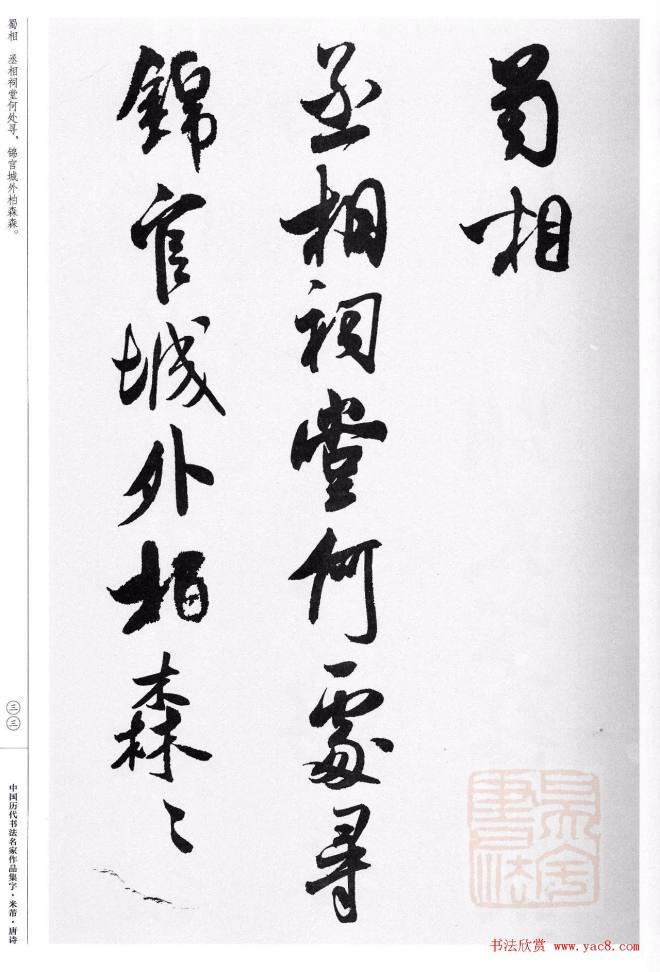 蜀相
丞相祠堂何處尋
錦官城外柏森〻
蜀相　丞相祠堂何处寻，锦官城外柏森森。
三三
中国历代书法名家作品集字·米芾·唐诗
书法欣赏 www.yac8.com